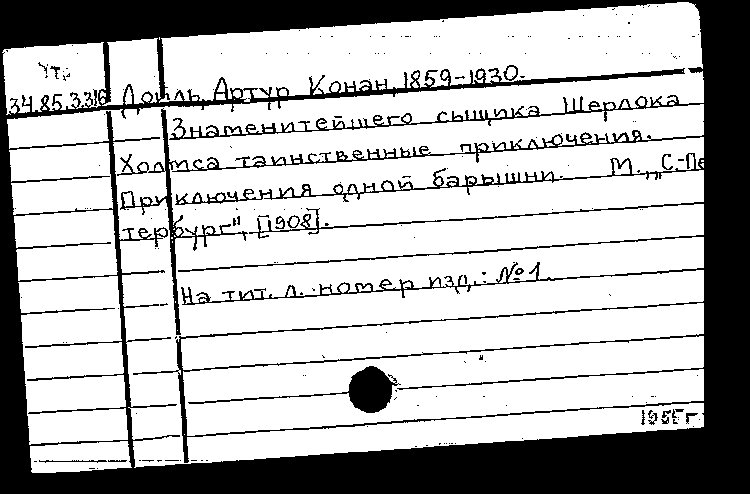 Утр
34.85.3.316 Дойль, Артур Конан, 1859-1930.
Знаменитейшего сыщика Шерлока
Холмса таинственные приключения.
Приключения одной барышни. М., „С.-Пе
тербург", [1908].
На тит. л. номер изд.: №1.